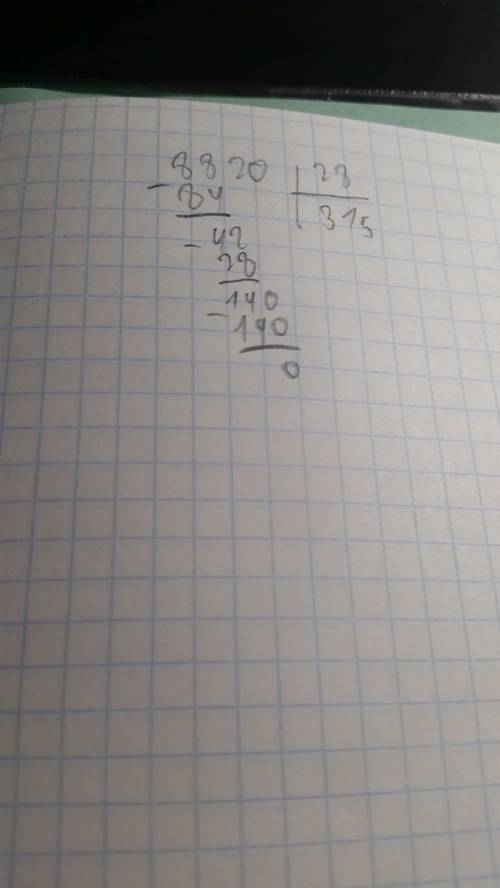 8820 | 28
- 84 | 315
- 42
28
- 140
140
0